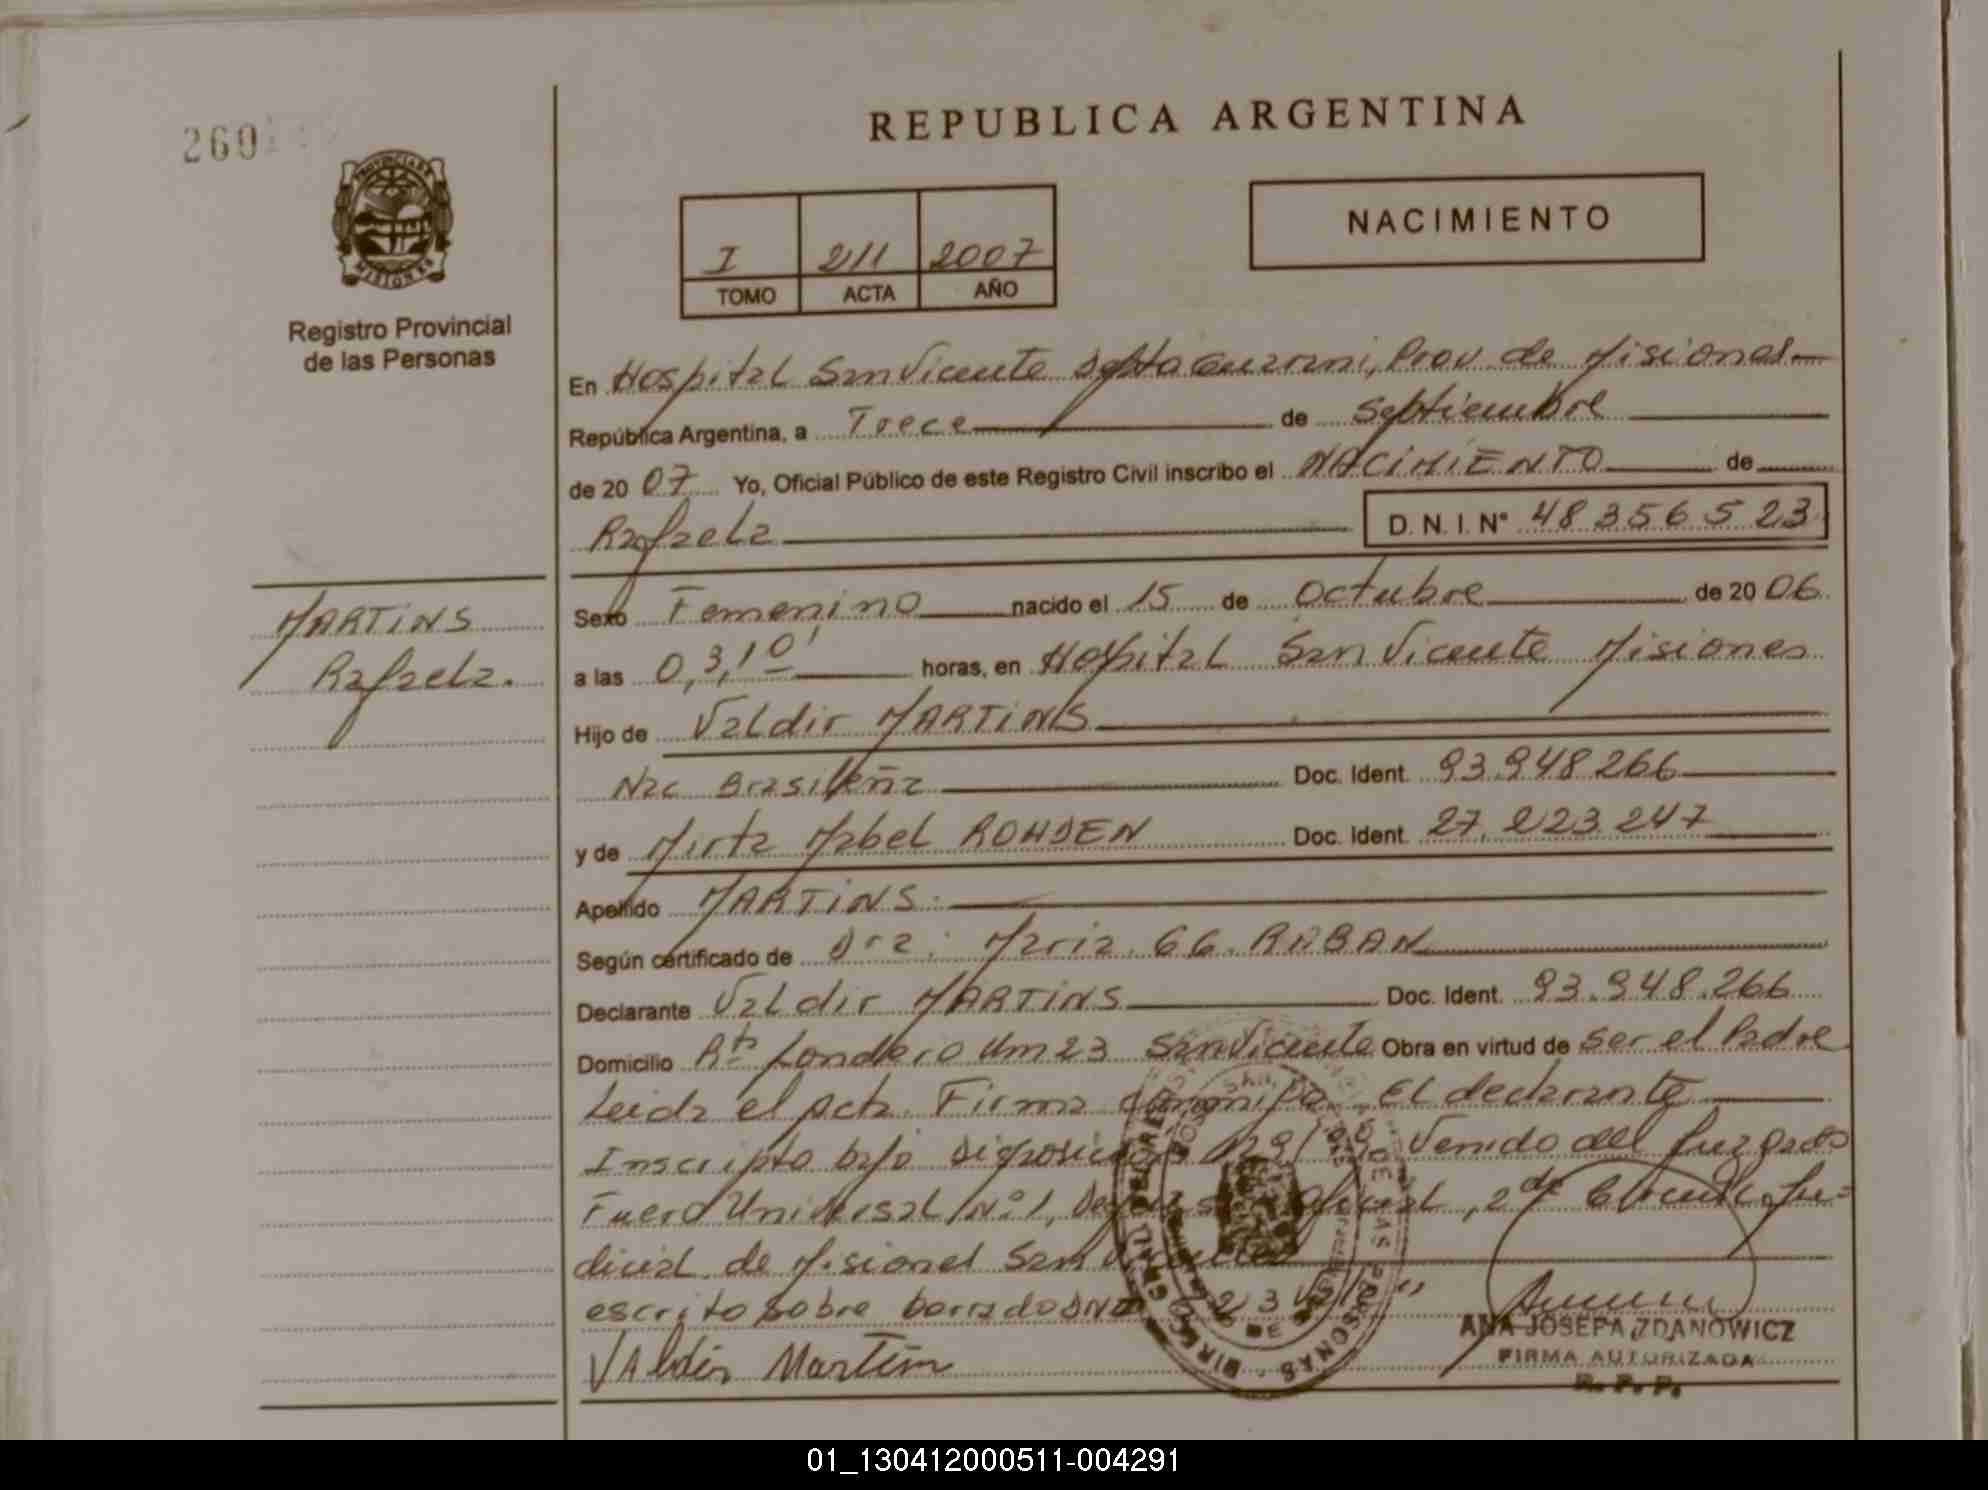 260
REPUBLICA ARGENTINA
PROVINCIA DE
MISIONES
Registro Provincial
de las Personas
I 211 2007
TOMO ACTA AÑO
NACIMIENTO
En Hospital San Vicente Dpto Guarani, Prov. de Misiones
República Argentina, a Trece de Septiembre
de 20 07 Yo, Oficial Público de este Registro Civil inscribo el NACIMIENTO de
Rafaela D. N. I. N° 48356523
MARTINS
Rafaela.
Sexo Femenino nacido el 15 de Octubre de 20 06
a las 0,3,10' horas, en Hospital San Vicente Misiones
Hijo de Valdir MARTINS
Nac Brasileña Doc. Ident. 93.948266
y de Mirta Mabel ROHDEN Doc. Ident. 27.223.247
Apellido MARTINS
Según certificado de Dra: Maria GG. RABAN
Declarante Valdir MARTINS Doc. Ident. 93.948.266
Domicilio Londero Km 23 San Vicente Obra en virtud de ser el Padre
Leida el acta Firma El declarante
Inscripto bajo Disposición Venido del Juzgado
Fuero Universal N°1, 2da Circunc. Ju=
dicial de Misiones San Vicente
escrito sobre borrado DNI
Valdir Martins
DIRECCION GRAL. DEL REGISTRO DE LAS PERSONAS
ANA JOSEFA ZDANOWICZ
FIRMA AUTORIZADA
R. P. P.
01_130412000511-004291